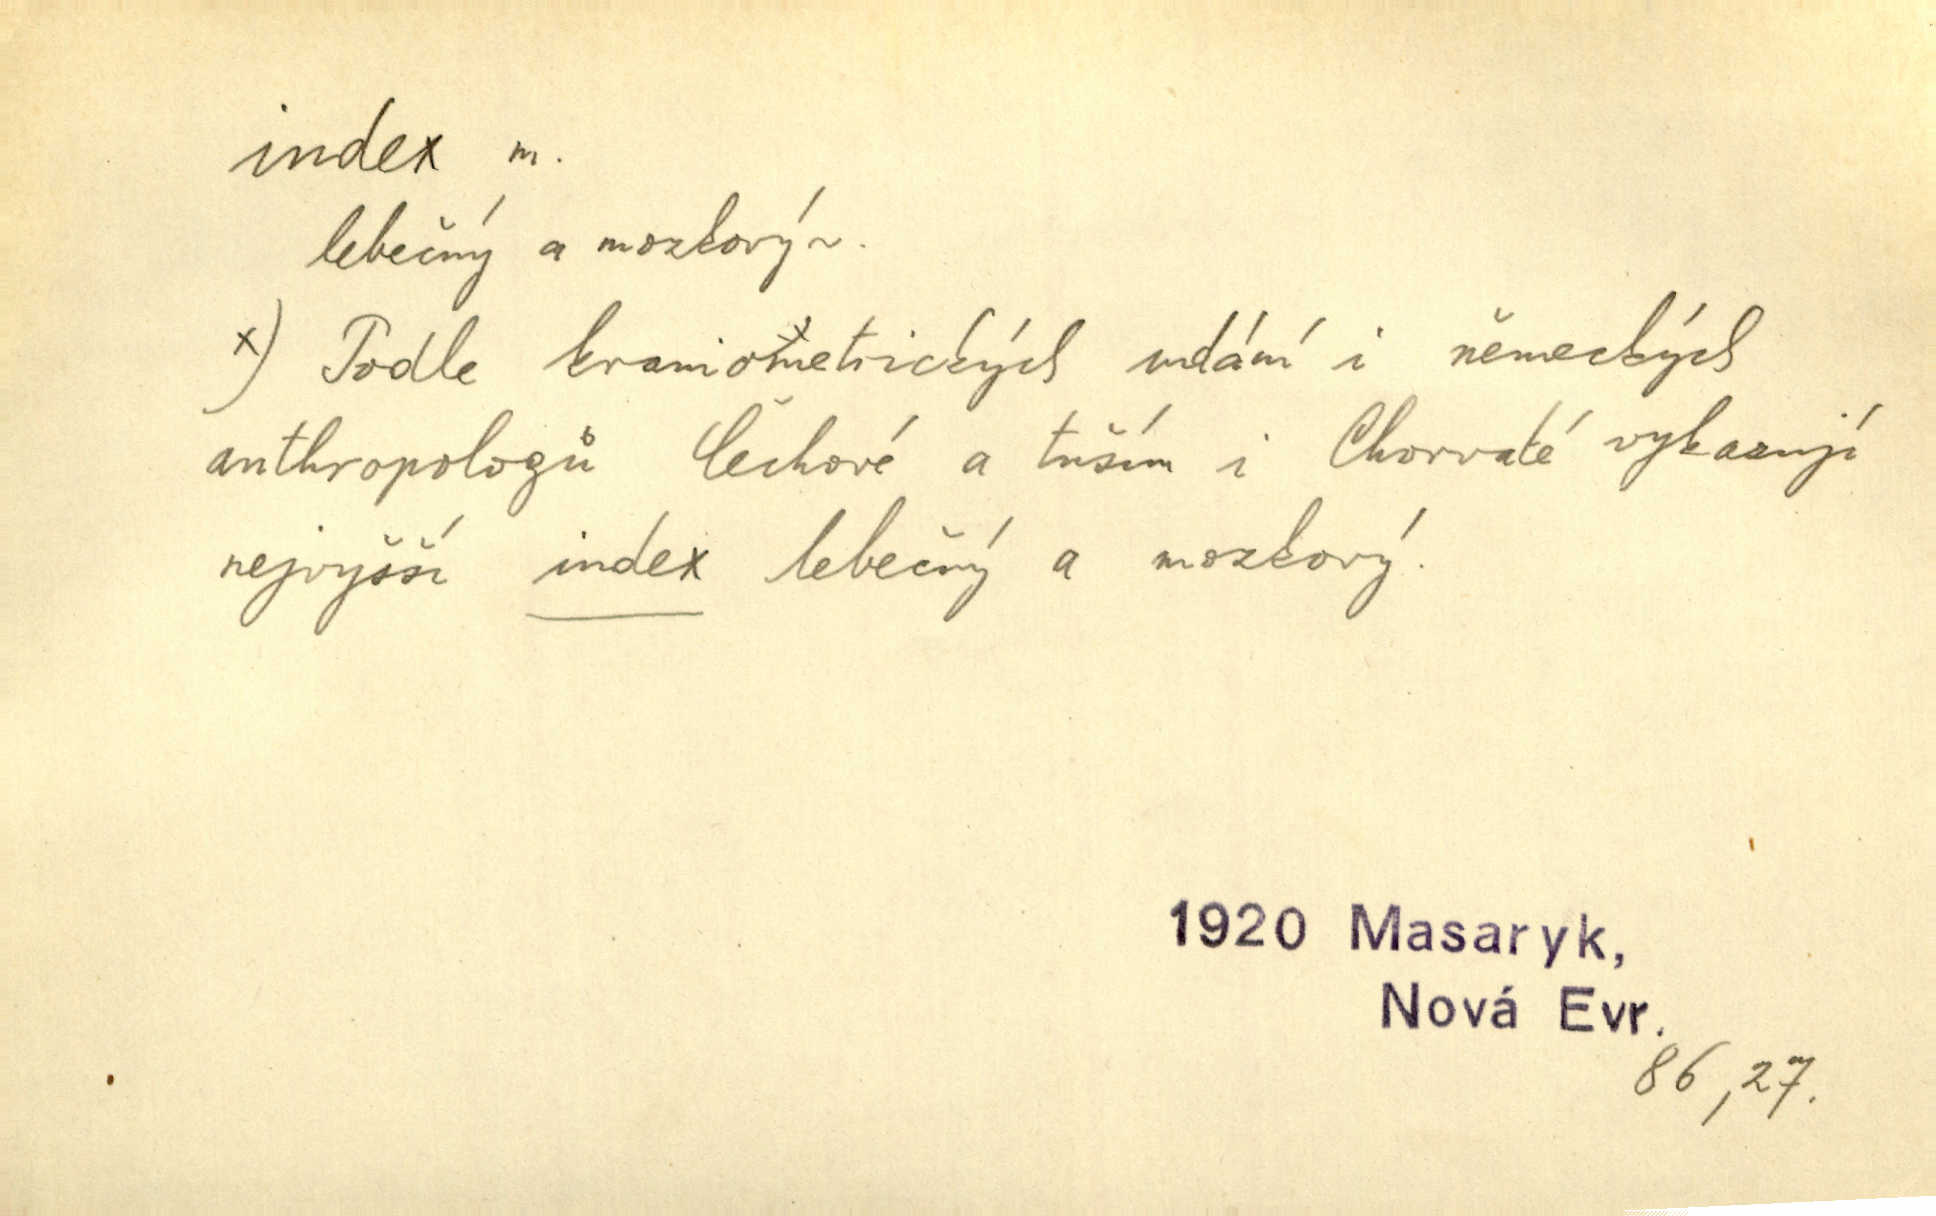 index m.
lebečný a mozkový ~.
x) Podle kraniometrických udání i německých
anthropologů Čechové a tuším i Chorvaté vykazují
nejvyšší index lebečný a mozkový.
1920 Masaryk,
Nová Evr.
86,27.